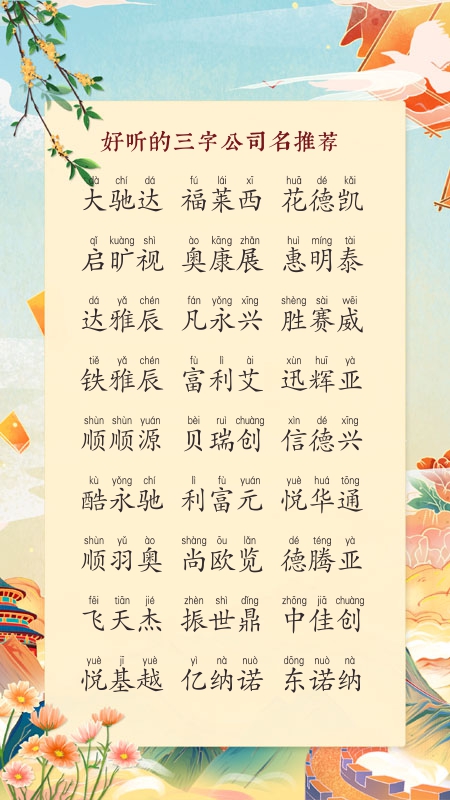 好听的三字公司名推荐
dà chí dá fú lái xī huā dé kǎi
大驰达 福莱西 花德凯
qǐ kuàng shì ào kāng zhǎn huì míng tài
启旷视 奥康展 惠明泰
dá yǎ chén fán yǒng xīng shèng sài wēi
达雅辰 凡永兴 胜赛威
tiě yǎ chén fù lì ài xùn huī yà
铁雅辰 富利艾 迅辉亚
shùn shùn yuán bèi ruì chuàng xìn dé xīng
顺顺源 贝瑞创 信德兴
kù yǒng chí lì fù yuán yuè huá tōng
酷永驰 利富元 悦华通
shùn yǔ ào shàng ōu lǎn dé téng yà
顺羽奥 尚欧览 德腾亚
fēi tiān jié zhèn shì dǐng zhōng jiā chuàng
飞天杰 振世鼎 中佳创
yuè jī yuè yì nà nuò dōng nuò nà
悦基越 亿纳诺 东诺纳